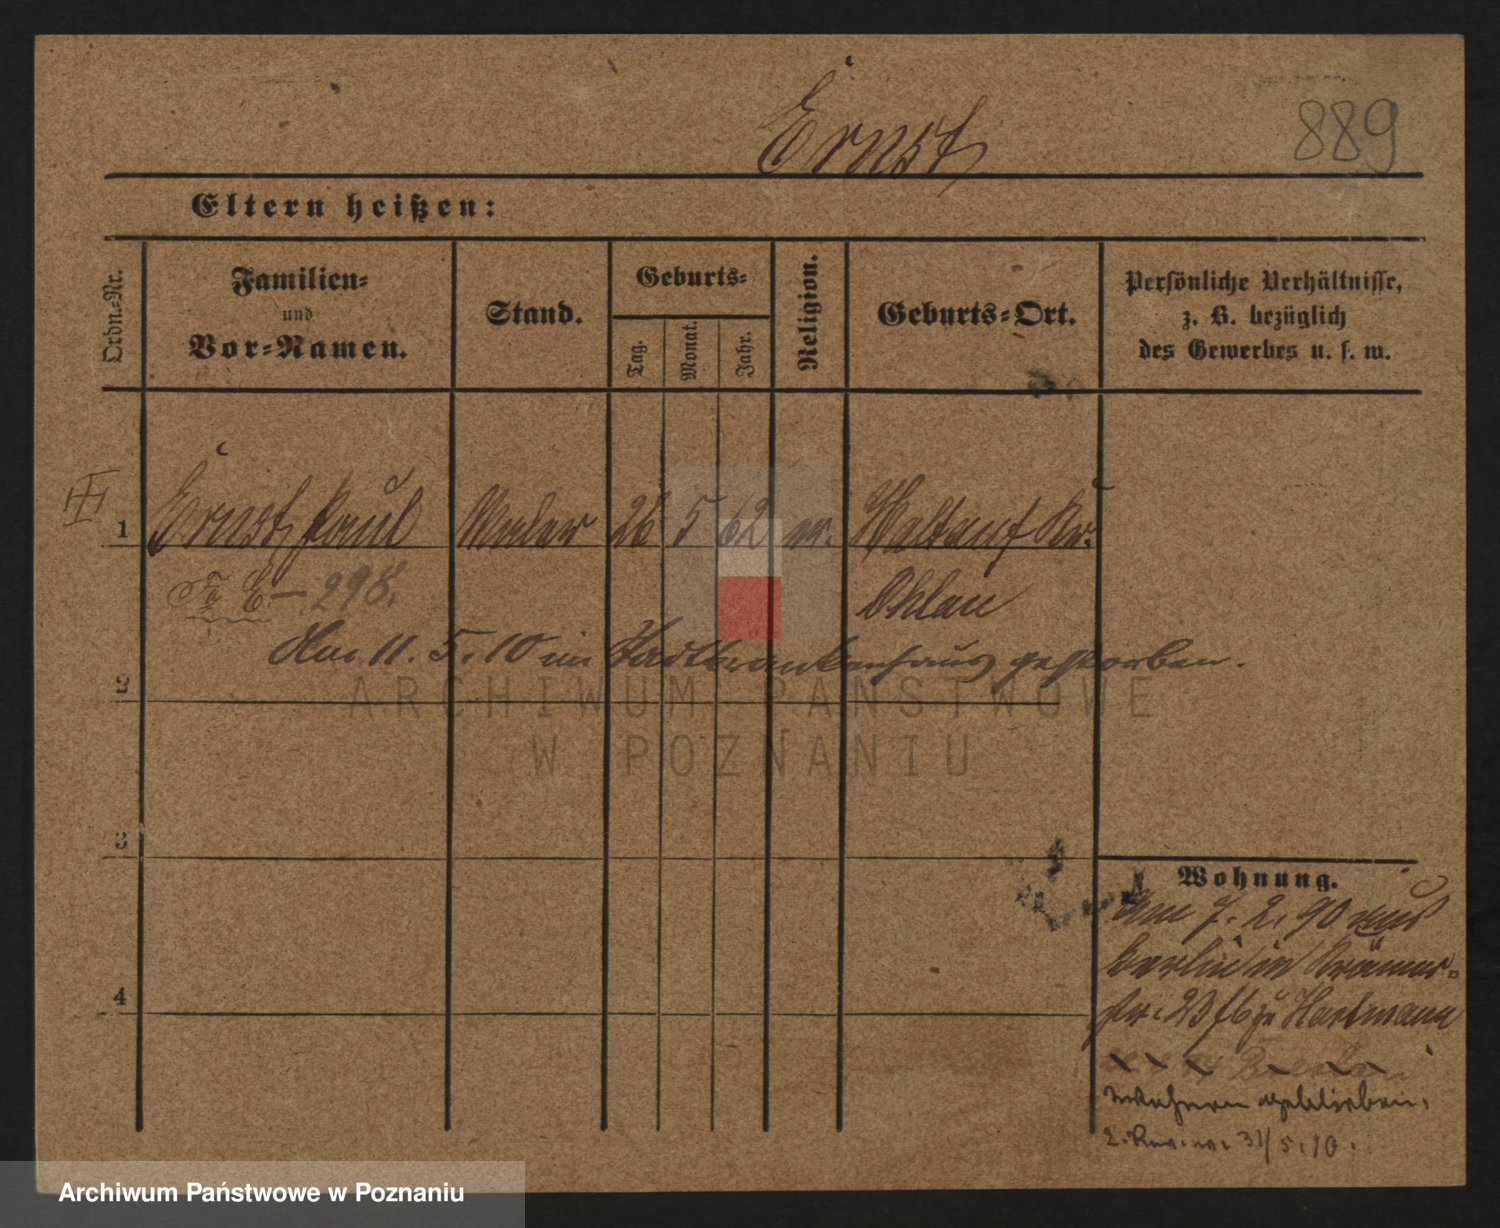 Ernst
889
Eltern heißen:
Ordn.-Nr.
Familien-
und
Vor-Namen.
Stand.
Geburts-
Tag.
Monat.
Jahr.
Religion.
Geburts-Ort.
Persönliche Verhältnisse,
z. B. bezüglich
des Gewerbes u. s. w.
III
1 Ernst Paul Maler 26 5 62 Kr.
Ohlau
E - 298.
Am 11. 5. 10 im Stadtkrankenhaus gestorben.
2
ARCHIWUM PAŃSTWOWE
W POZNANIU
3
Wohnung.
Am 7. 2. 90 aus
Berlin in Krämer-
str. 23 zu Hartmann
4
wohnen geblieben.
31/5.10.
Archiwum Państwowe w Poznaniu